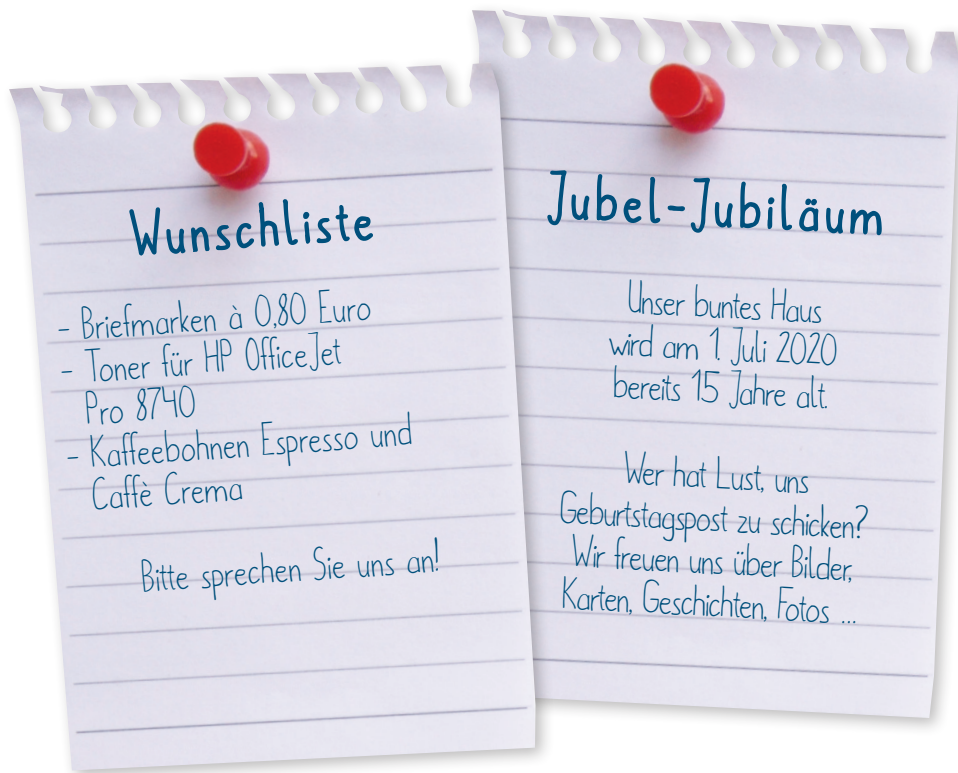 Wunschliste
- Briefmarken à 0,80 Euro
- Toner für HP OfficeJet
Pro 8740
- Kaffeebohnen Espresso und
Caffè Crema
Bitte sprechen Sie uns an!
Jubel-Jubiläum
Unser buntes Haus
wird am 1. Juli 2020
bereits 15 Jahre alt.
Wer hat Lust, uns
Geburtstagspost zu schicken?
Wir freuen uns über Bilder,
Karten, Geschichten, Fotos ...